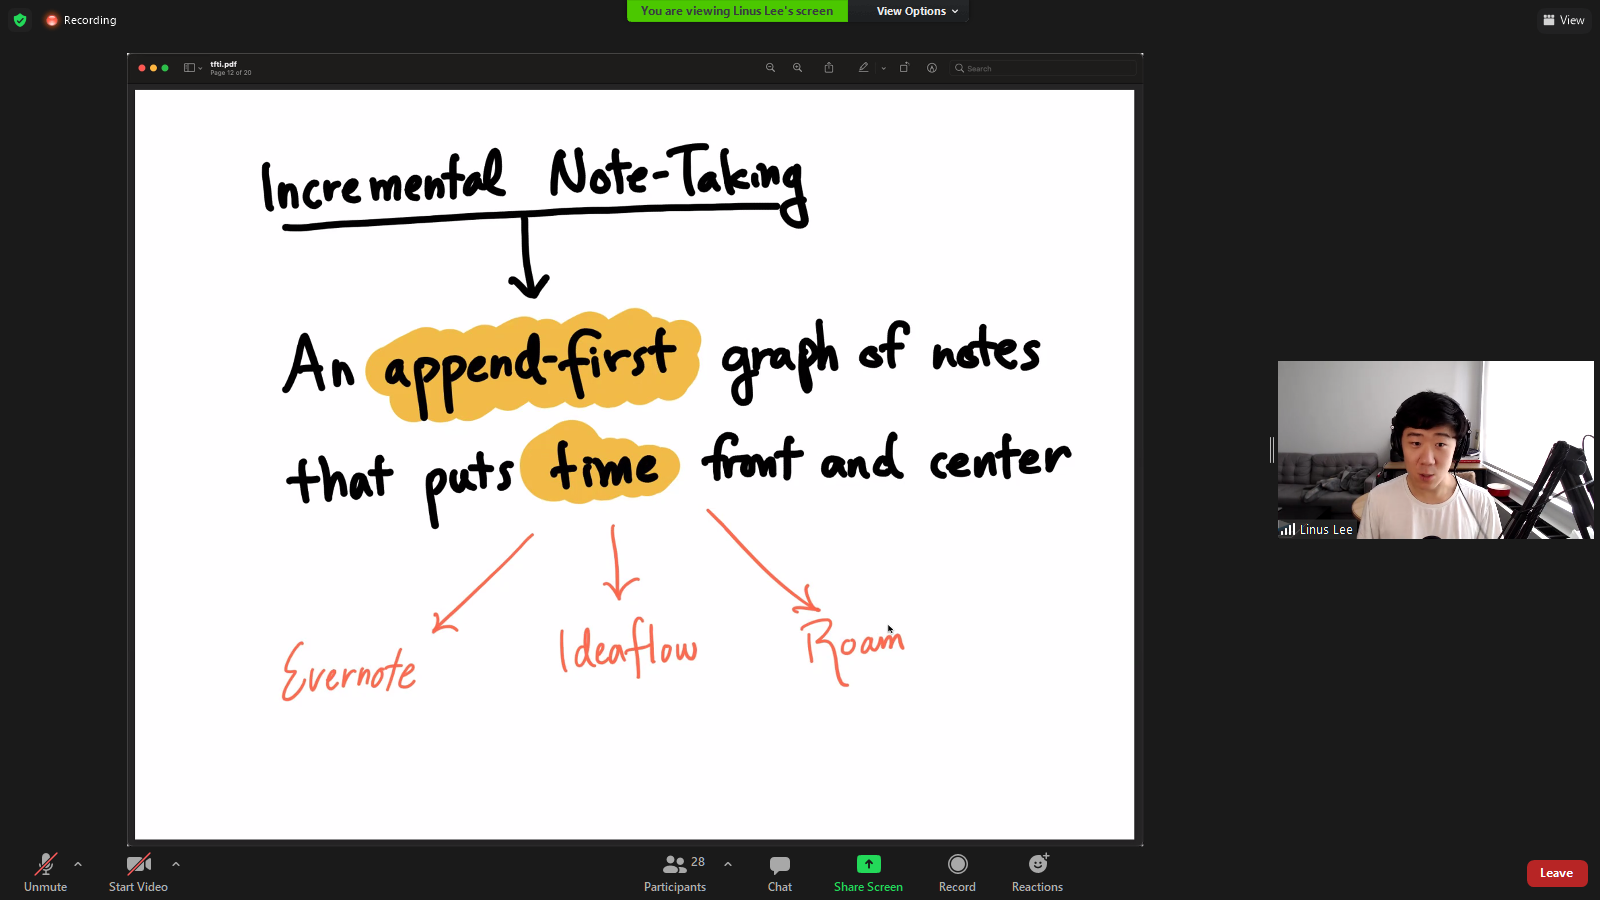 Recording
You are viewing Linus Lee's screen
View Options
View
tfti.pdf
Page 12 of 20
Search
Incremental Note-Taking
An append-first graph of notes
that puts time front and center
Evernote
Ideaflow
Roam
Linus Lee
Unmute
Start Video
Participants
28
Chat
Share Screen
Record
Reactions
Leave